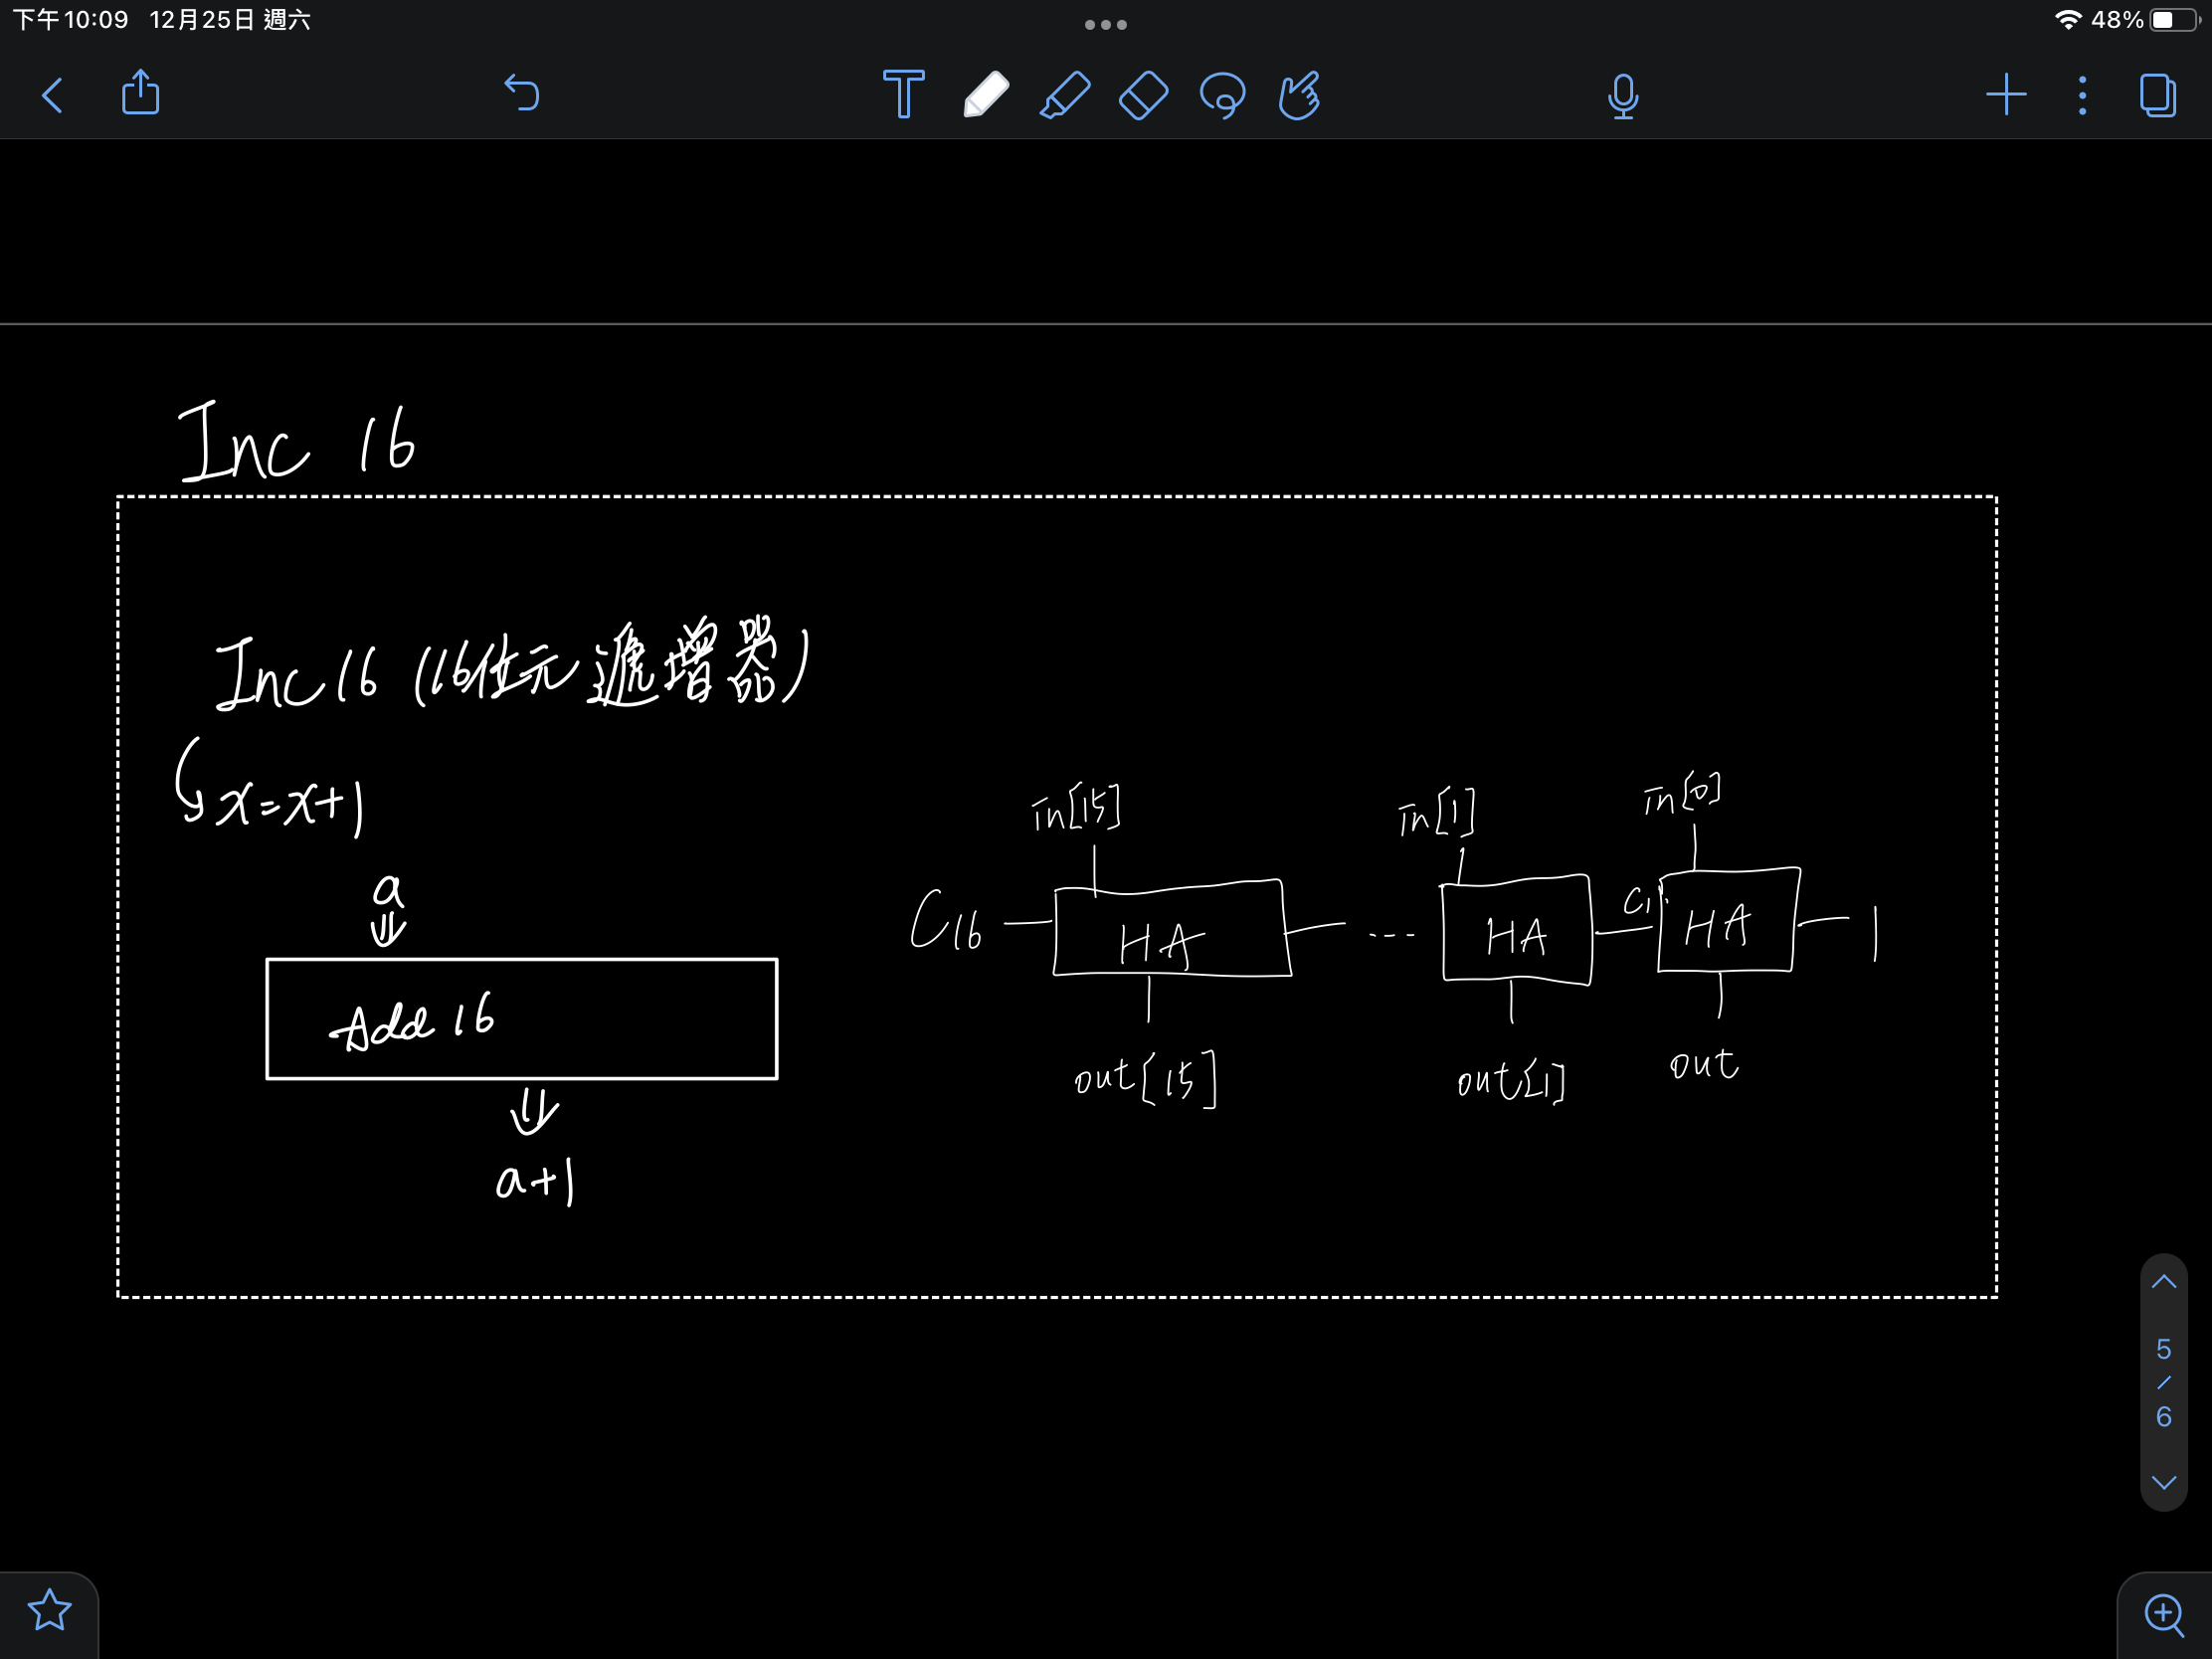 下午10:09 12月25日 週六
48%
Inc 16
Inc16 (16位元遞增器)
x=x+1
a
Add 16
a+1
in[15]
in[1]
in[0]
C16
HA
...
HA
C1
HA
1
out[15]
out[1]
out
5
/
6